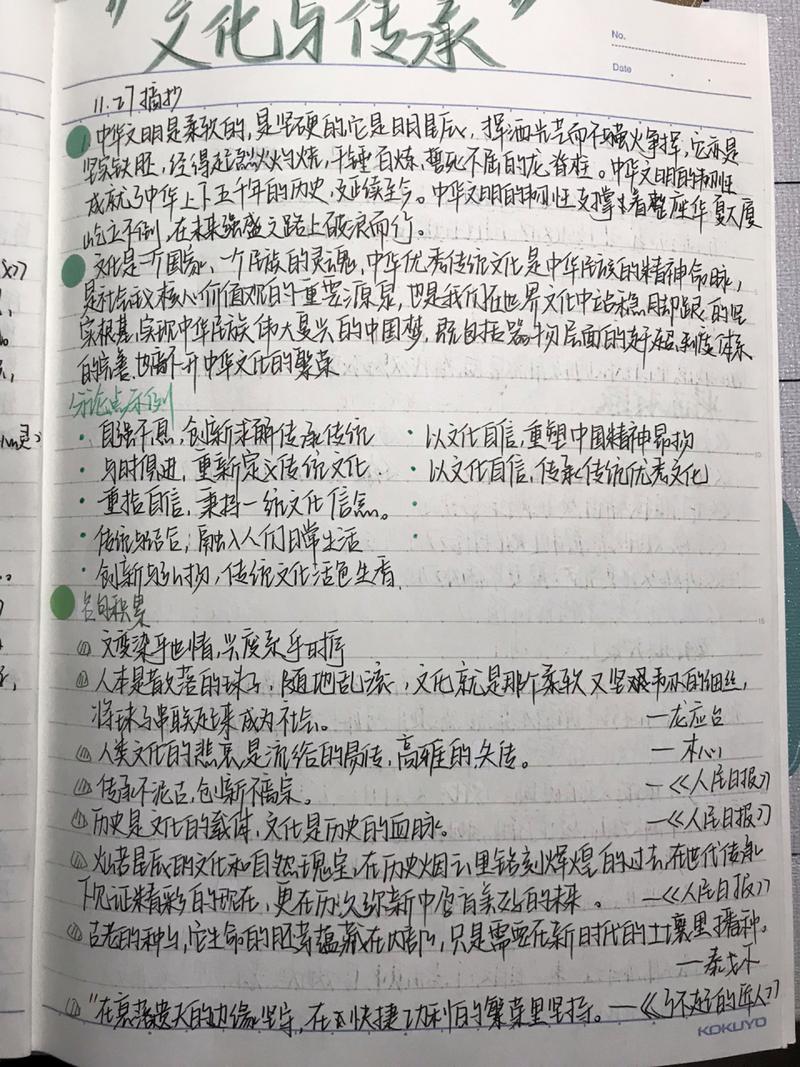 "文化与传承"
No.
Date
11.27 摘抄
1. 中华文明是柔软的,是坚硬的,它是日月星辰,挥洒光芒而不与萤火争辉,它亦是
坚家铁胚,经得起烈火灼烧,千锤百炼,誓死不屈的龙脊柱。中华文明的韧性
成就了中华上下五千年的历史,延续至今。中华文明的韧性支撑着整座华夏大厦
屹立不倒,在未来强盛之路上破浪而行。
文化是一个国家、一个民族的灵魂,中华优秀传统文化是中华民族的精神命脉,
是社会主义核心价值观的重要源泉,也是我们在世界文化中站稳脚跟的坚
实根基,实现中华民族伟大复兴的中国梦,既包括器物层面的发展,制度体系
的完善,也离不开中华文化的繁荣
分论点示例
· 自强不息,创新求解传承传统
· 以文化自信,重塑中国精神昂扬
· 与时俱进,重新定义传统文化
· 以文化自信,传承传统优秀文化
· 重拾自信,秉持一统文化信念。
· 传统与结合,融入人们日常生活
· 创新与弘扬,传统文化活色生香
名句积累
文变染乎世情,兴废系乎时序
人本是散落的珠子,随地乱滚,文化就是那个柔软又坚韧的细丝,
将珠子串联起来成为社会。 —龙应台
人类文化的悲哀,是流俗的易传,高雅的失传。 —木心
传承不泥古,创新不离宗。 —《人民日报》
历史是文化的载体,文化是历史的血脉。 —《人民日报》
灿若星辰的文化和自然瑰宝,在历史烟云里铭刻辉煌的过去,在世代传承
下见证精彩的现在,更在历久弥新中孕育美好的未来。 —《人民日报》
古老的种子,它生命的胚芽蕴藏在内部,只是需要在新时代的土壤里播种。
—泰戈尔
"在衰落遗失的边缘坚守,在快捷功利的繁荣里坚持。 —《了不起的匠人》
KOKUYO